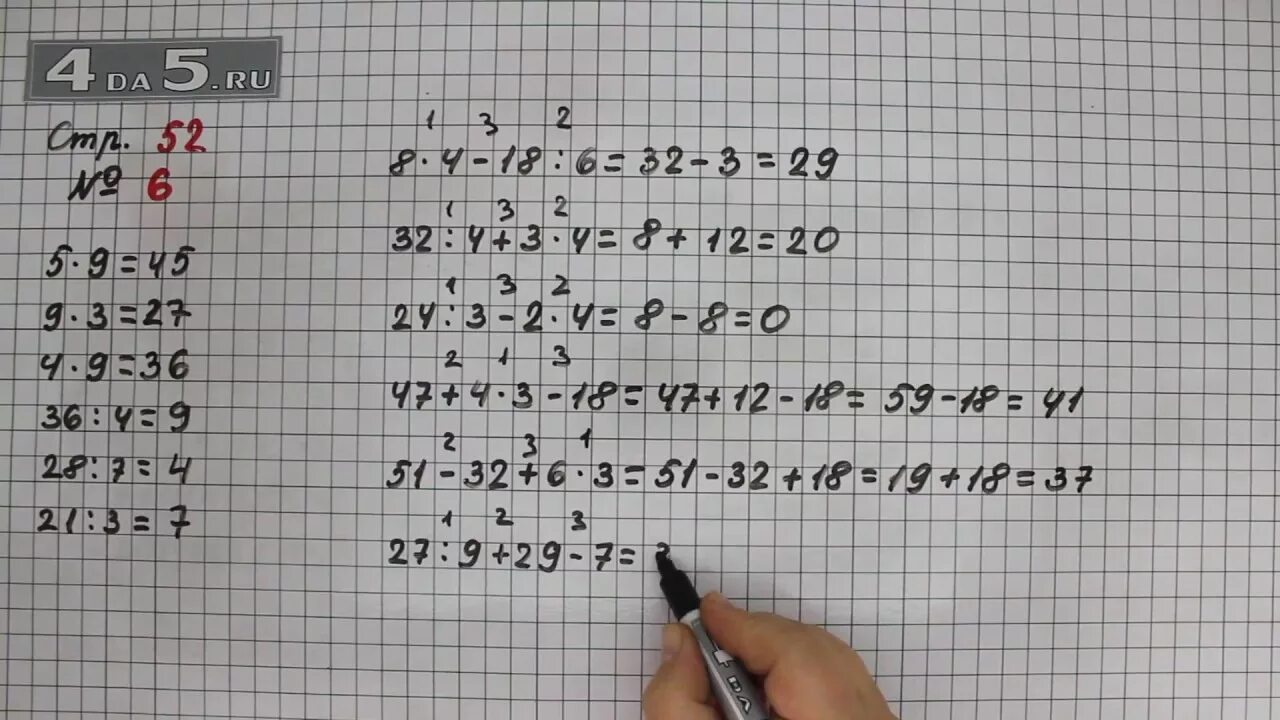 4DA5.RU
Стр. 52
№ 6
5·9=45
9·3=27
4·9=36
36:4=9
28:7=4
21:3=7
1 3 2
8·4-18:6=32-3=29
1 3 2
32:4+3·4=8+12=20
1 3 2
24:3-2·4=8-8=0
2 1 3
47+4·3-18=47+12-18=59-18=41
2 3 1
51-32+6·3=51-32+18=19+18=37
1 2 3
27:9+29-7=
DA